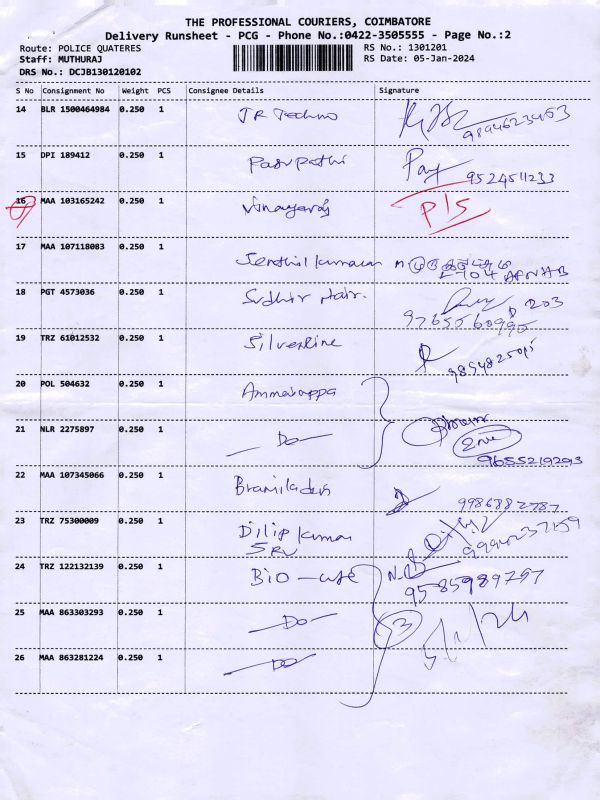 THE PROFESSIONAL COURIERS, COIMBATORE
Delivery Runsheet - PCG - Phone No.:0422-3505555 - Page No.:2
Route: POLICE QUATERES RS No.: 1301201
Staff: MUTHURAJ RS Date: 05-Jan-2024
DRS No.: DCJB130120102
S No Consignment No Weight PCS Consignee Details Signature
14 BLR 1500464984 0.250 1 JR Techno
9894623453
15 DPI 189412 0.250 1 Pasupathi Pay
9524511233
16 MAA 103165242 0.250 1 Vinayaraj P/S
17 MAA 107118083 0.250 1 Senthil Kumaran
18 PGT 4573036 0.250 1 Sudhir Nair. D 203
9765560995
19 TRZ 61012532 0.250 1 Silverline
20 POL 504632 0.250 1 Ammaiappa
21 NLR 2275897 0.250 1 — Do —
2nd
9655219293
22 MAA 107345066 0.250 1
9986882787
23 TRZ 75300009 0.250 1 Dilip Kumar
SRV
9994237159
24 TRZ 122132139 0.250 1 Bio - N.
9585989757
25 MAA 863303293 0.250 1 — Do — 3
5/1/24
26 MAA 863281224 0.250 1 — Do —